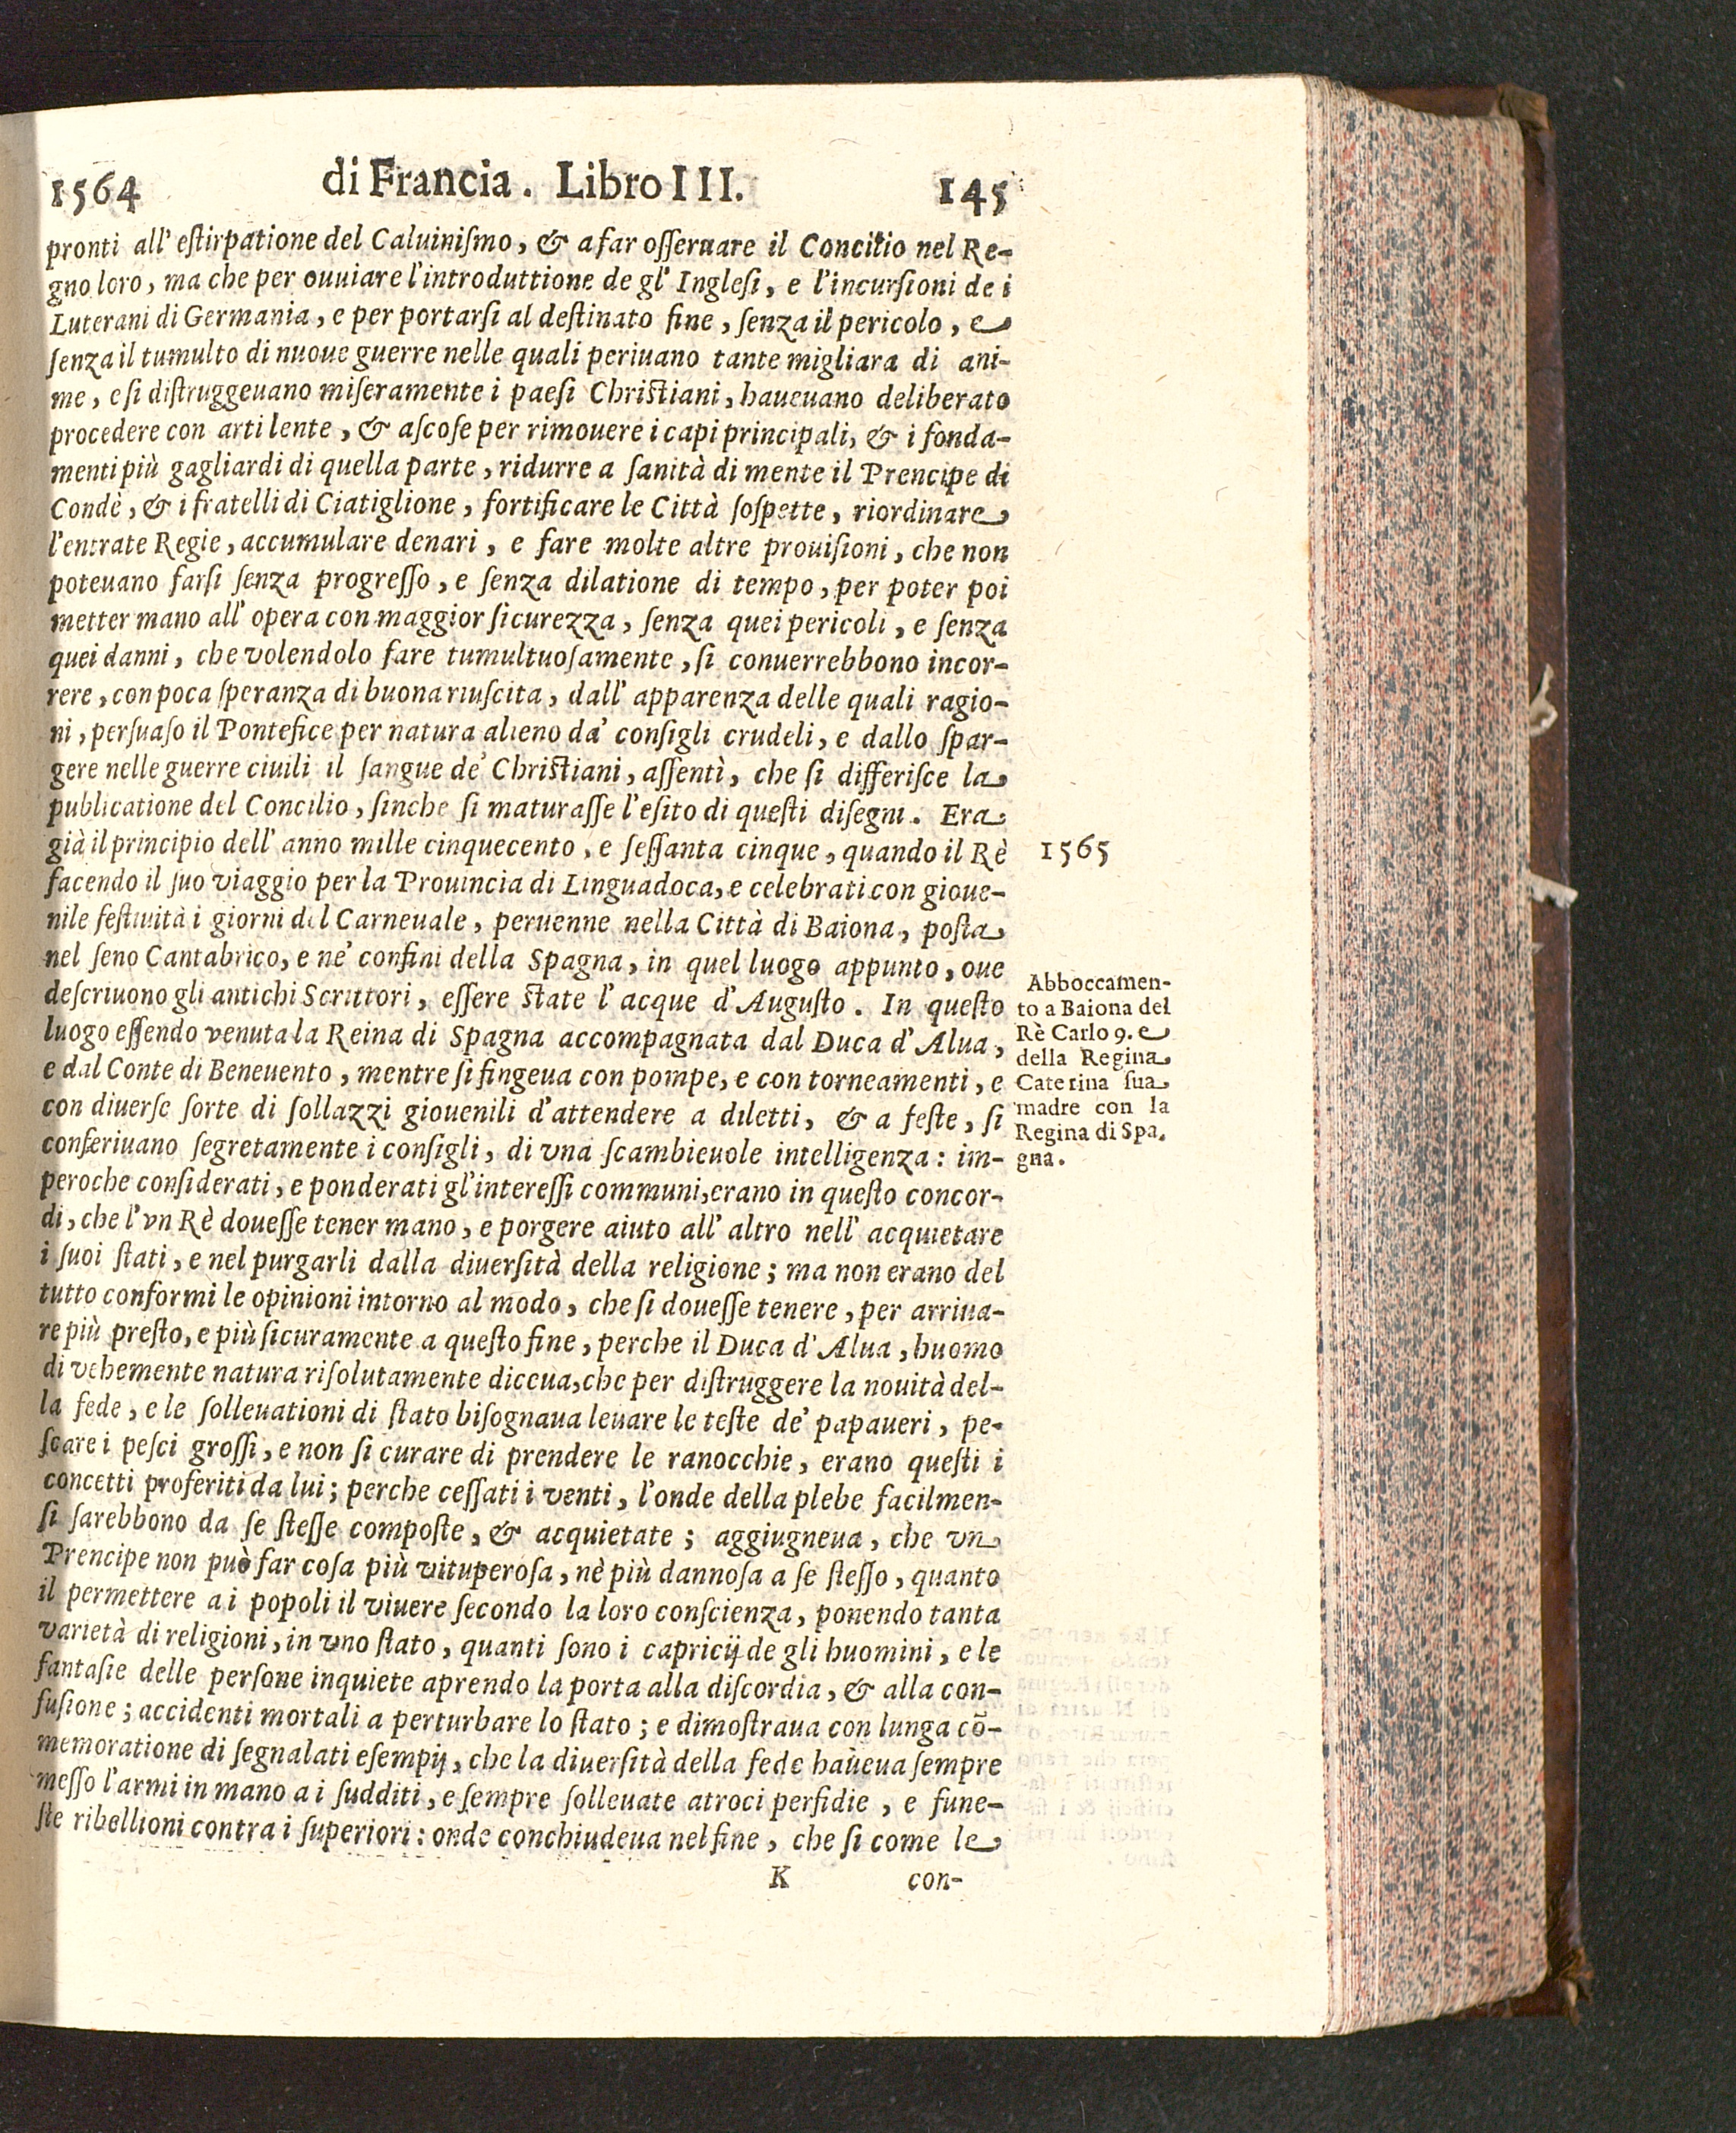 1564 di Francia. Libro III. 145
pronti all' eſtirpatione del Caluiniſmo, & a far oſſeruare il Concilio nel Re-
gno loro, ma che per ouuiare l'introduttione de gl' Ingleſi, e l'incurſioni de i
Luterani di Germania, e per portarſi al deſtinato fine, ſenza il pericolo, e
ſenza il tumulto di nuoue guerre nelle quali periuano tante migliara di ani-
me, e ſi diſtruggeuano miſeramente i paeſi Chriſtiani, haueuano deliberato
procedere con arti lente, & aſcoſe per rimouere i capi principali, & i fonda-
menti più gagliardi di quella parte, ridurre a ſanità di mente il Prencipe di
Condè, & i fratelli di Ciatiglione, fortificare le Città ſoſpette, riordinare
l'entrate Regie, accumulare denari, e fare molte altre prouiſioni, che non
poteuano farſi ſenza progreſſo, e ſenza dilatione di tempo, per poter poi
metter mano all' opera con maggior ſicurezza, ſenza quei pericoli, e ſenza
quei danni, che volendolo fare tumultuoſamente, ſi conuerrebbono incor-
rere, con poca ſperanza di buona riuſcita, dall' apparenza delle quali ragio-
ni, perſuaſo il Pontefice per natura alieno da' conſigli crudeli, e dallo ſpar-
gere nelle guerre ciuili il ſangue de' Chriſtiani, aſſentì, che ſi differiſce la
publicatione del Concilio, ſinche ſi maturaſſe l'eſito di queſti diſegni. Era
già il principio dell' anno mille cinquecento, e ſeſſanta cinque, quando il Rè
1565
facendo il ſuo viaggio per la Prouincia di Linguadoca, e celebrati con gioue-
nile feſtiuità i giorni del Carneuale, peruenne nella Città di Baiona, poſta
nel ſeno Cantabrico, e ne' confini della Spagna, in quel luogo appunto, oue
deſcriuono gli antichi Scrittori, eſſere ſtate l' acque d' Auguſto. In queſto
luogo eſſendo venuta la Reina di Spagna accompagnata dal Duca d' Alua,
e dal Conte di Beneuento, mentre ſi fingeua con pompe, e con torneamenti, e
con diuerſe ſorte di ſollazzi giouenili d'attendere a diletti, & a feſte, ſi
conferiuano ſegretamente i conſigli, di vna ſcambieuole intelligenza: im-
Abboccamen-
to a Baiona del
Rè Carlo 9. e
della Regina
Caterina ſua
madre con la
Regina di Spa.
gna.
peroche conſiderati, e ponderati gl'intereſſi communi, erano in queſto concor-
di, che l'vn Rè doueſſe tener mano, e porgere aiuto all' altro nell' acquietare
i ſuoi ſtati, e nel purgarli dalla diuerſità della religione; ma non erano del
tutto conformi le opinioni intorno al modo, che ſi doueſſe tenere, per arriua-
re più preſto, e più ſicuramente a queſto fine, perche il Duca d' Alua, huomo
di vehemente natura riſolutamente diceua, che per diſtruggere la nouità del-
la fede, e le ſolleuationi di ſtato biſognaua leuare le teſte de' papaueri, pe-
ſcare i peſci groſſi, e non ſi curare di prendere le ranocchie, erano queſti i
concetti proferiti da lui; perche ceſſati i venti, l'onde della plebe facilmen-
ſi ſarebbono da ſe ſteſſe compoſte, & acquietate; aggiugneua, che vn
Prencipe non può far coſa più vituperoſa, nè più dannoſa a ſe ſteſſo, quanto
il permettere a i popoli il viuere ſecondo la loro conſcienza, ponendo tanta
varietà di religioni, in vno ſtato, quanti ſono i capricij de gli huomini, e le
fantaſie delle perſone inquiete aprendo la porta alla diſcordia, & alla con-
fuſione; accidenti mortali a perturbare lo ſtato; e dimoſtraua con lunga cō-
memoratione di ſegnalati eſempij, che la diuerſità della fede haueua ſempre
meſſo l'armi in mano a i ſudditi, e ſempre ſolleuate atroci perfidie, e fune-
ſte ribellioni contra i ſuperiori: onde conchiudeua nel fine, che ſi come le
K con-